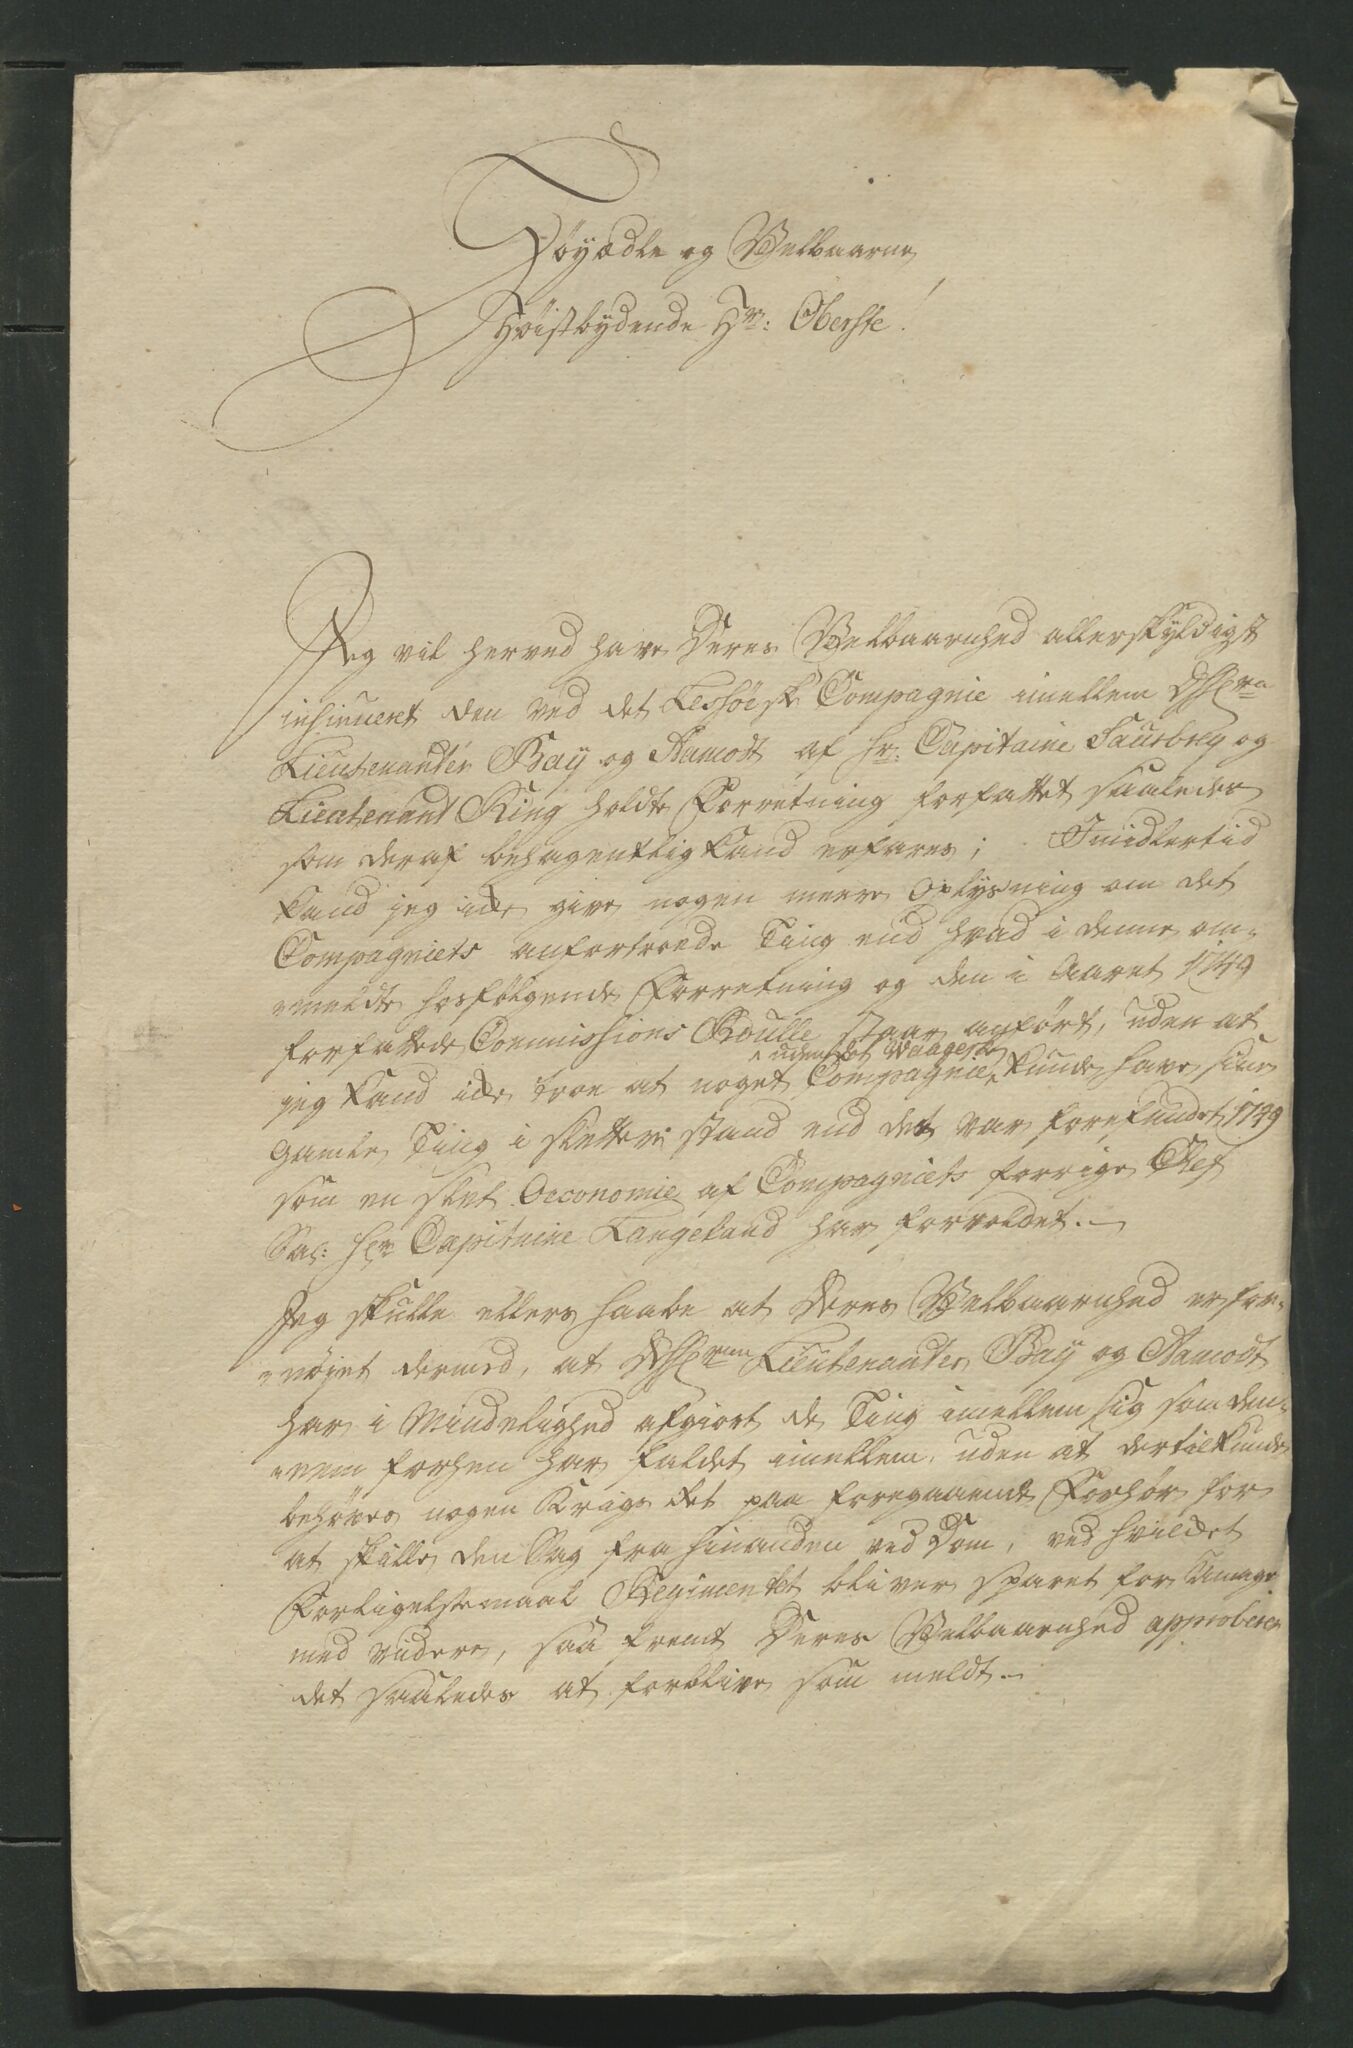 Höyædle og Velbaarne
Höistbydende Hr: Oberste!
Jeg vil herved have Deres Velbaarnhed allerskyldigst
insinueret den ved det Lessöeske Compagnie imellem
Lieutenanter Bay og Aamodt af Hr: Capitaine Saurbrey og
Lieutenant Ring holdte Forretning forfattet saaledes
som deraf behagentlig kand erfares; Imidlertid
kand jeg icke give nogen meere Oplysning om det
Compagniets anfortroede Ting end hvad i denne om-
-meldte hosfölgende Forretning og den i Aaret 1749
forfattede Commissions Roulle staar anfört, uden at
jeg kand icke troe at noget Compagnie uden det Waageske kunde have sine
gamle Ting i slettere stand end det var forefundet 1749
som en slet Oeconomie af Compagniets forrige Chef
Sal: Hr Capitaine Langeland har forvoldet.
Jeg skulle ellers haabe at Deres Velbaarnhed er for-
-nöyet dermed, at Lieutenanter Bay og Aamodt
har i Mindelighed afgiort de Ting imellem sig som dem-
-nem forhen har faldet imellem, uden at dertil kunde
behöves nogen Krigs Ret paa foregaaende Forhör for
at skille den Sag fra hinanden ved Dom, ved hvilcket
Forligelsesmaal Regimentet bliver sparet for Umage
med videre, saa fremt Deres Velbaarnhed approberer
det saaledes at forblive som meldt.